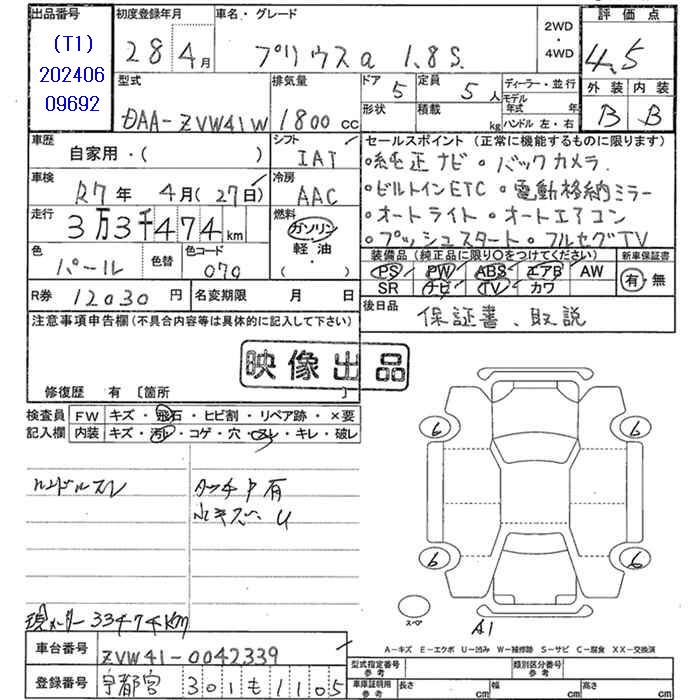 出品番号 初度登録年月 車名・グレード 2WD・4WD 評価点
(T1)
202406
09692
28 4月 プリウスa 1.8S 4.5
型式 排気量 ドア 5 定員 5人 ディーラー・並行 外装 内装
モデル年式 年
DAA-ZVW41W 1800cc 形状 積載 kg ハンドル 左・右 B B
車歴 シフト セールスポイント (正常に機能するものに限ります)
自家用・( ) IAT ・純正ナビ・バックカメラ
車検 冷房
R7年 4月(27日) AAC ・ビルトインETC・電動格納ミラー
走行 燃料
3万3千474km ガソリン・軽油・( ) ・オートライト・オートエアコン
・プッシュスタート・フルセグTV
色 色替 色コード 装備品 (純正品に限り○をつけてください) 新車保証書
パール 070 PS PW ABS エアB AW 有・無
SR ナビ TV カワ
R券 12030円 名変期限 月 日 後日品 保証書、取説
注意事項申告欄 (不具合内容等は具体的に記入して下さい)
映像出品
修復歴 有 〔箇所 〕
検査員 FW キズ・飛石・ヒビ割・リペア跡・×要
記入欄 内装 キズ・汚レ・コゲ・穴・スレ・キレ・破レ
6 6
ハンドルスレ タッチP有
小キズ、U
6 6
スペア
A1
現メーター33474km
A-キズ E-エクボ U-凹み W-補修跡 S-サビ C-腐食 XX-交換済
車台番号 ZVW41-0042339
型式指定番号 参考 類別区分番号 参考
登録番号 宇都宮 301も1105
車庫証明用 参考 長さ cm 幅 cm 高さ cm